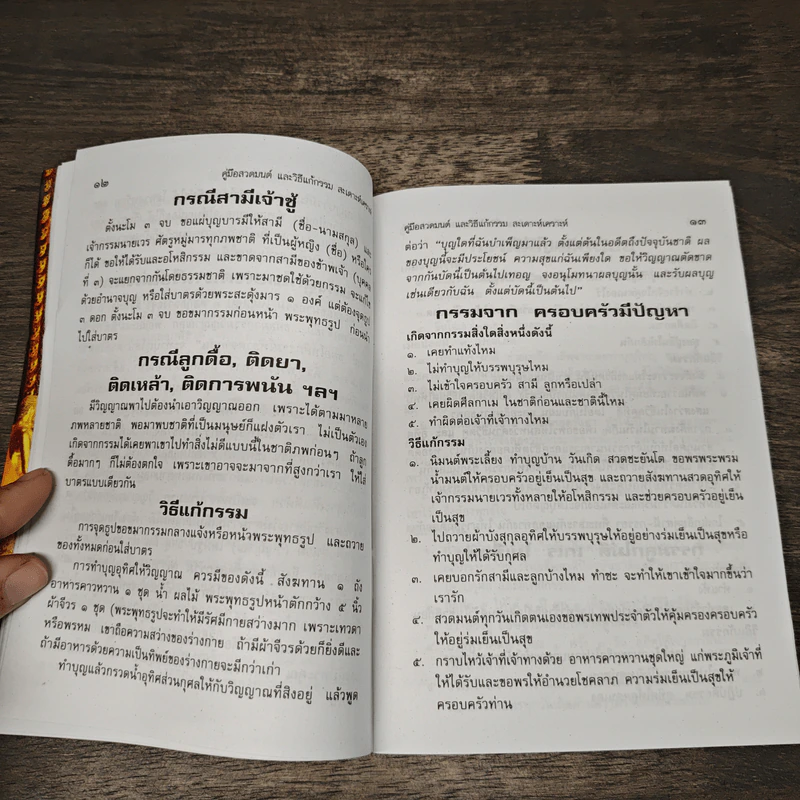 ๑๒
คู่มือสวดมนต์ และวิธีแก้กรรม สะเดาะห์เคราะห์
กรณีสามีเจ้าชู้
ตั้งนะโม ๓ จบ ขอแผ่บุญบารมีให้สามี (ชื่อ-นามสกุล) และ
เจ้ากรรมนายเวร ศัตรูหมู่มารทุกภพชาติ ที่เป็นผู้หญิง (ชื่อ) หรือใคร
ก็ได้ ขอให้ได้รับและอโหสิกรรม และขาดจากสามีของข้าพเจ้า (บุคคล
ที่ ๓) จะแยกจากกันโดยธรรมชาติ เพราะมาชดใช้ด้วยกรรม จะแก้ไข
ด้วยอำนาจบุญ หรือใส่บาตรด้วยพระสะดุ้งมาร ๑ องค์ แต่ต้องจุดธูป
๓ ดอก ตั้งนะโม ๓ จบ ขอขมากรรมก่อนหน้า พระพุทธรูป ก่อนนำ
ไปใส่บาตร
กรณีลูกดื้อ, ติดยา,
ติดเหล้า, ติดการพนัน ฯลฯ
มีวิญญาณพาไปต้องนำเอาวิญญาณออก เพราะได้ตามมาหลาย
ภพหลายชาติ พอมาพบชาติที่เป็นมนุษย์ก็แฝงตัวเรา ไม่เป็นตัวเอง
เกิดจากกรรมได้เคยพาเขาไปทำสิ่งไม่ดีแบบนี้ในชาติภพก่อนๆ ถ้าลูก
ดื้อมากๆ ก็ไม่ต้องตกใจ เพราะเขาอาจจะมาจากที่สูงกว่าเรา ให้ใส่
บาตรแบบเดียวกัน
วิธีแก้กรรม
การจุดธูปขอขมากรรมกลางแจ้งหรือหน้าพระพุทธรูป และถวาย
ของทั้งหมดก่อนใส่บาตร
การทำบุญอุทิศให้วิญญาณ ควรมีของดังนี้ สังฆทาน ๑ ถัง
อาหารคาวหวาน ๑ ชุด น้ำ ผลไม้ พระพุทธรูปหน้าตักกว้าง ๕ นิ้ว
ผ้าจีวร ๑ ชุด (พระพุทธรูปจะทำให้มีรัศมีกายสว่างมาก เพราะเทวดา
หรือพรหม เขาถือความสว่างของร่างกาย ถ้ามีผ้าจีวรด้วยก็ยิ่งดีและ
ถ้ามีอาหารด้วยความเป็นทิพย์ของร่างกายจะมีกว่าเก่า
ทำบุญแล้วกรวดน้ำอุทิศส่วนกุศลให้กับวิญญาณที่สิงอยู่ แล้วพูด
คู่มือสวดมนต์ และวิธีแก้กรรม สะเดาะห์เคราะห์
๑๓
ต่อว่า "บุญใดที่ฉันบำเพ็ญมาแล้ว ตั้งแต่ต้นในอดีตถึงปัจจุบันชาติ ผล
ของบุญนี้จะมีประโยชน์ ความสุขแก่ฉันเพียงใด ขอให้วิญญาณตัดขาด
จากกันบัดนี้เป็นต้นไปเทอญ จงอนุโมทนาผลบุญนั้น และรับผลบุญ
เช่นเดียวกับฉัน ตั้งแต่บัดนี้เป็นต้นไป"
กรรมจาก ครอบครัวมีปัญหา
เกิดจากกรรมสิ่งใดสิ่งหนึ่งดังนี้
๑. เคยทำแท้งไหม
๒. ไม่ทำบุญให้บรรพบุรุษไหม
๓. ไม่เข้าใจครอบครัว สามี ลูกหรือเปล่า
๔. เคยผิดศีลกาเม ในชาติก่อนและชาตินี้ไหม
๕. ทำผิดต่อเจ้าที่เจ้าทางไหม
วิธีแก้กรรม
๑. นิมนต์พระเลี้ยง ทำบุญบ้าน วันเกิด สวดชะยันโต ขอพรพระพรม
น้ำมนต์ให้ครอบครัวอยู่เย็นเป็นสุข และถวายสังฆทานสวดอุทิศให้
เจ้ากรรมนายเวรทั้งหลายให้อโหสิกรรม และช่วยครอบครัวอยู่เย็น
เป็นสุข
๒. ไปถวายผ้าบังสุกุลอุทิศให้บรรพบุรุษให้อยู่อย่างร่มเย็นเป็นสุขหรือ
ทำบุญให้ได้รับกุศล
๓. เคยบอกรักสามีและลูกบ้างไหม ทำซะ จะทำให้เขาเข้าใจมากขึ้นว่า
เรารัก
๔. สวดมนต์ทุกวันเกิดตนเองขอพรเทพประจำตัวให้คุ้มครองครอบครัว
ให้อยู่ร่มเย็นเป็นสุข
๕. กราบไหว้เจ้าที่เจ้าทางด้วย อาหารคาวหวานชุดใหญ่ แก่พระภูมิเจ้าที่
ให้ได้รับและขอพรให้อำนวยโชคลาภ ความร่มเย็นเป็นสุขให้
ครอบครัวท่าน